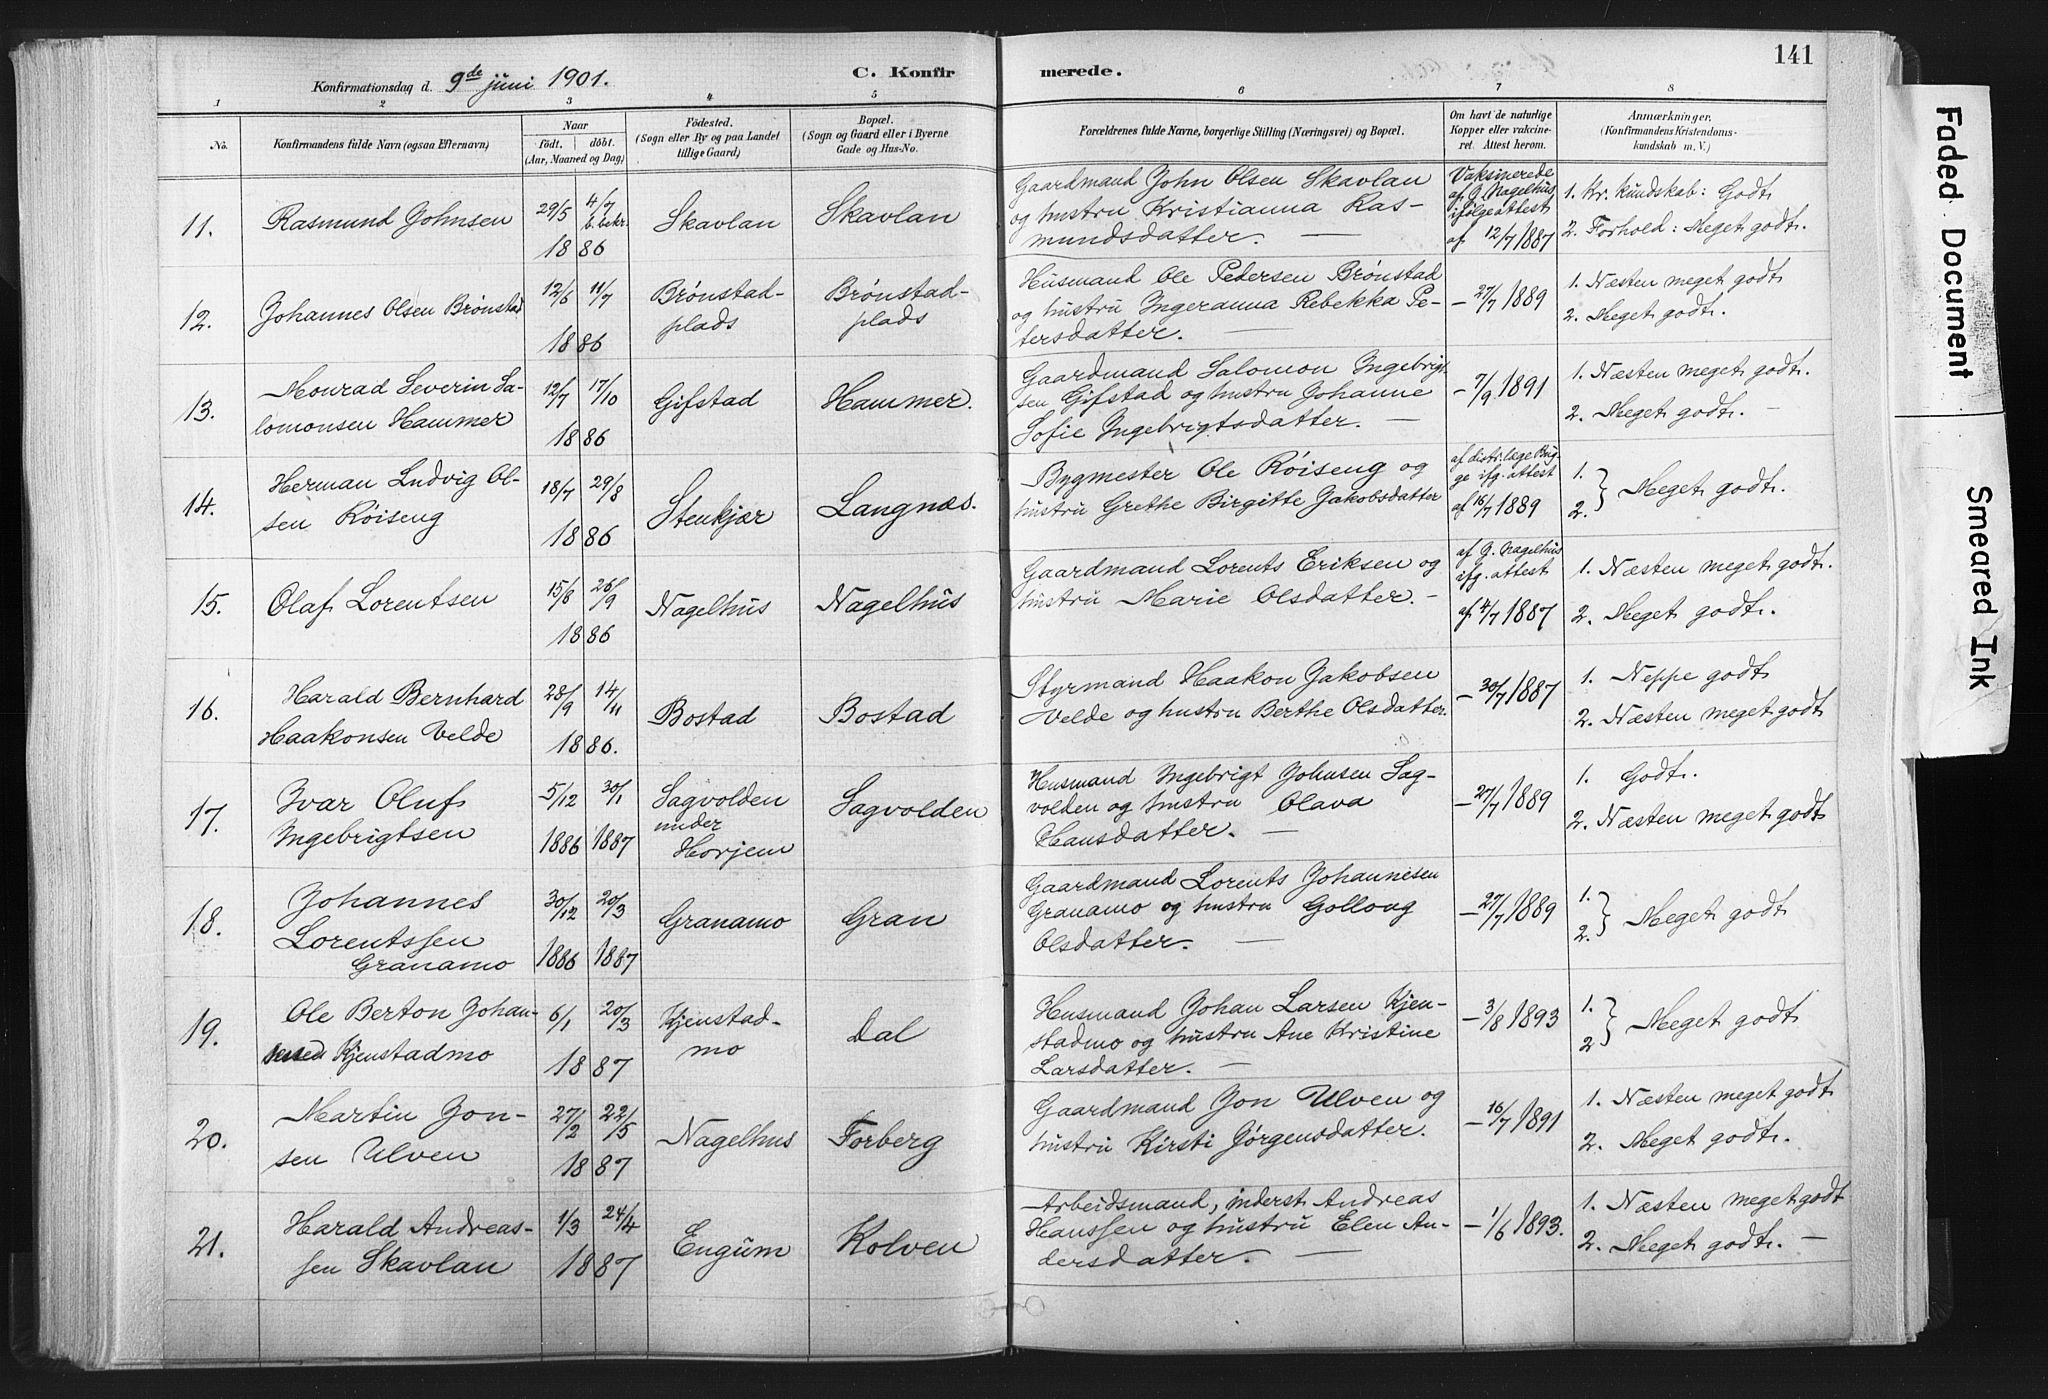 141
Konfirmationsdag d. 9de juni 1901.
C. Konfirmerede.
1 2 3 4 5 6 7 8
No.
Konfirmandens fulde Navn (ogsaa Efternavn)
Naar
födt. döbt.
(Aar, Maaned og Dag)
Födested.
(Sogn eller By og paa Landet
tillige Gaard)
Bopæl.
(Sogn og Gaard eller i Byerne
Gade og Hus-No.
Forældrenes fulde Navne, borgerlige Stilling (Næringsvei) og Bopæl.
Om havt de naturlige
Kopper eller vakcine-
ret. Attest herom.
Anmærkninger.
(Konfirmandens Kristendoms-
kundskab m. V.)
11.
Rasmund Johnsen
29/5 4/7
b. bekr.
1886
Skavlan
Skavlan
Gaardmand John Olsen Skavlan
og hustru Kristianna Ras-
mundsdatter. —
Vaksinerede
af G. Nagelhus
ifølge attest
af 12/7 1887
1. Kr. kundskab: Godt
2. Forhold: Meget godt.
12.
Johannes Olsen Brønstad
12/6 11/7
1886
Brønstad-
plads
Brønstad-
plads
Husmand Ole Pedersen Brønstad
og hustru Ingeranna Rebekka Pe-
tersdatter. —
— 27/7 1889
1. Næsten meget godt
2. Meget godt.
13.
Monrad Severin Sa-
lomonsen Hammer
12/7 17/10
1886
Gifstad
Hammer.
Gaardmand Salomon Ingebrigt-
sen Gifstad og hustru Johanne
Sofie Ingebrigtsdatter. —
— 7/9 1891
1. Næsten meget godt.
2. Meget godt. —
14.
Herman Ludvig Ol-
sen Røiseng
18/7 29/8
1886
Stenkjær
Langnæs.
Bygmester Ole Røiseng og
hustru Grethe Birgitte Jakobsdatter
af distr. læge Brig-
ge ifg. attest
af 16/7 1889
1.
2. } Meget godt.
15.
Olaf Lorentsen
15/8 26/9
1886
Nagelhus
Nagelhus
Gaardmand Lorents Eriksen og
hustru Marie Olsdatter. —
af G. Nagelhus
ifg. attest
af 4/7 1887
1. Næsten meget godt.
2. Meget godt.
16.
Harald Bernhard
Haakonsen Velde
28/9 14/11
1886.
Bostad
Bostad
Styrmand Haakon Jakobsen
Velde og hustru Berthe Olsdatter.
— 30/7 1887
1. Neppe godt
2. Næsten meget godt
17.
Ivar Oluf
Ingebrigtsen
5/12 30/1
1886 1887
Sagvolden
under
Horjem
Sagvolden
Husmand Ingebrigt Johnsen Sag-
volden og hustru Olava
Hansdatter. —
— 27/7 1889
1. Godt.
2. Næsten meget godt
18.
Johannes
Lorentssen
Granamo
30/12 20/3
1886 1887
Granamo
Gran
Gaardmand Lorents Johannesen
Granamo og hustru Gollong
Olsdatter. —
— 27/7 1889
1.
2. } Meget godt
19.
Ole Berton Johan-
nesen Kjenstadmo
6/1 20/3
1887
Kjenstad-
mo
Dal
Husmand Johan Larsen Kjen-
stadmo og hustru Ane Kristine
Larsdatter. —
— 3/8 1893
1.
2 } Meget godt
20.
Martin Jon-
sen Ulven
27/2 22/5
1887
Nagelhus
Forberg
Gaardmand Jon Ulven og
hustru Kirsti Jørgensdatter.
— 16/7 1891
1. Næsten meget godt
2. Meget godt.
21.
Harald Andreas-
sen Skavlan
1/3 24/4
1887
Engum
Kolven
Arbeidsmand, inderst Andreas
Hanssen og hustru Elen An-
dersdatter. —
— 1/6 1893.
1. Næsten meget godt
2. Meget godt. —
Faded Document
Smeared Ink